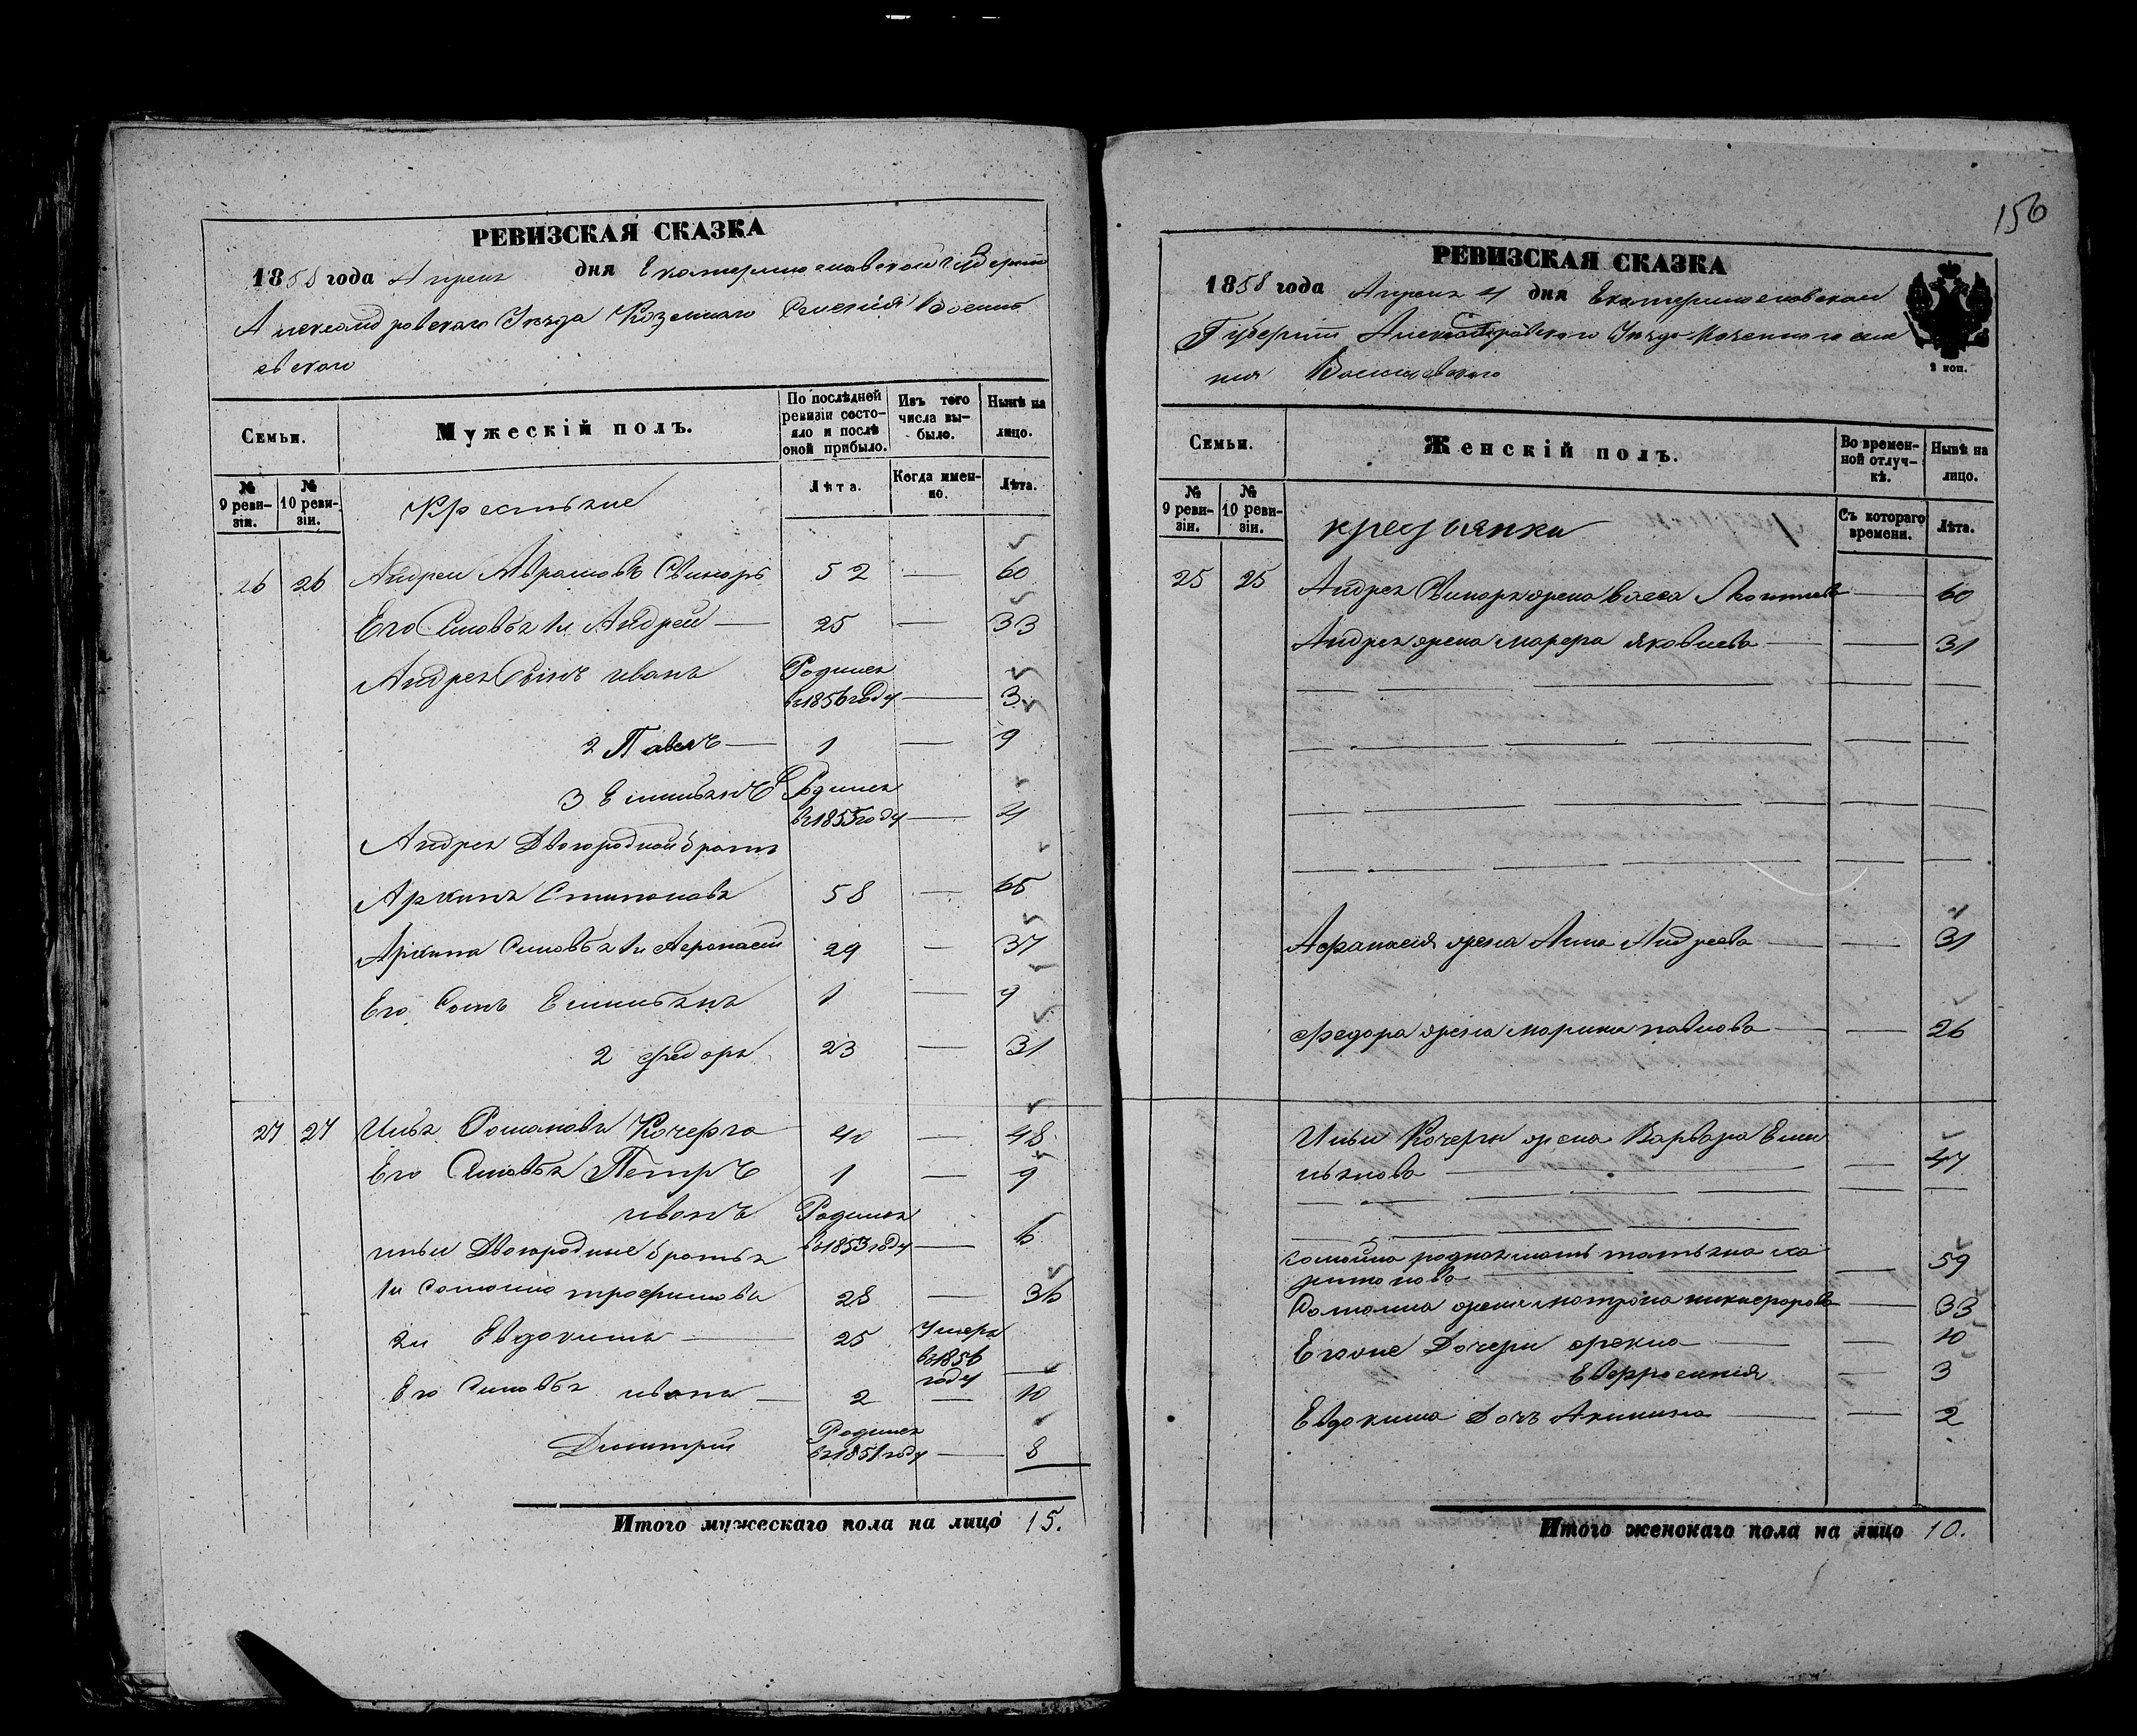 РЕВИЗСКАЯ СКАЗКА
1858 года Апреля дня Екатеринославской Губернии
Александровского Уезда Казенного Селения
евского
Семьи.
Мужескій полъ.
По послѣдней ревизіи состояло и послѣ оной прибыло.
Изъ того числа выбыло.
Нынѣ на лицо.
№ 9 ревизіи.
№ 10 ревизіи.
Лѣта.
Когда именно.
Лѣта.
Крестьяне
26 26 Андреи Аврамовъ Свинарь 52 — 60
Его Сыновья 1й Андрей — 25 — 33
Андрея Сынъ иванъ Родился
въ 1856 году — 3
2 Павелъ — 1 — 9
3 Емильянъ Родился
въ 1855 году — 4
Андрея Двоюродной братъ
Архипъ Стипановъ 58 — 65
Архипа Сыновья 1й Афонасий 29 — 37
Его Сынъ Емильянъ 1 — 9
2 Федоръ 23 — 31
27 27 Илья Романовъ Кочерга 40 — 48
Его Сыновья Петръ 1 — 9
иванъ Родился
въ 1853 году — 6
ильи Двоюродные братья
1й трофимовъ 28 — 36
2й Евдокимъ — 25 Умеръ
въ 1856
году —
Его Сыновья иванъ — 2 — 10
Дмитрий Родился
въ 1851 году — 8
Итого мужескаго пола на лицо 15.
156
РЕВИЗСКАЯ СКАЗКА
1858 года Апреля 4 дня Екатеринославской
Губернии Александровского Уезда Казенного селе
ния
2 коп.
Семьи.
Женскій полъ.
Во временной отлучкѣ.
Нынѣ на лицо.
№ 9 ревизіи.
№ 10 ревизіи.
Съ котораго времени.
Лѣта.
25 25 Андрея Свинаря жена Васса — 60
Андрея жена марфа яковлева — — 31
Афанасия жена Анна Андреева — — 31
Федора жена марина павлова — — 26
Ильи Кочерги жена Варвара Еми
льянова — — 47
родная мать татьяна ха
ритонова — — 59
жена матрона никифорова — 33
Его же Дочери фекла — — 10
Евфросиния — 3
Евдокима Дочь Акилина — — 2
Итого женскаго пола на лицо 10.